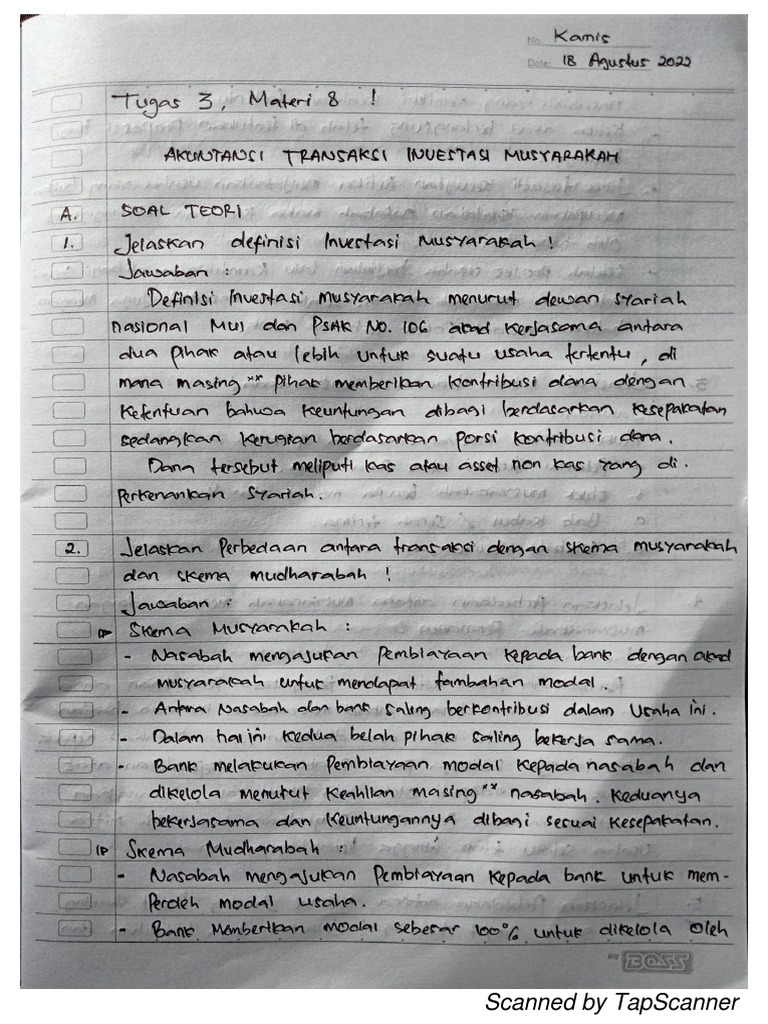 No. Kamis
Date: 18 Agustus 2022
Tugas 3, Materi 8 !
AKUNTANSI TRANSAKSI INVESTASI MUSYARAKAH
A. SOAL TEORI
1. Jelaskan definisi Investasi Musyarakah !
Jawaban :
Definisi Investasi musyarakah menurut dewan syariah
nasional MUI dan PSAK NO. 106 akad kerjasama antara
dua pihak atau lebih untuk suatu usaha tertentu, di
mana masing" pihak memberikan kontribusi dana dengan
Ketentuan bahwa keuntungan dibagi berdasarkan kesepakatan
sedangkan kerugian berdasarkan porsi kontribusi dana.
Dana tersebut meliputi kas atau asset non kas yang di.
perkenankan syariah.
2. Jelaskan Perbedaan antara transaksi dengan skema musyarakah
dan skema mudharabah !
Jawaban :
Skema Musyarakah :
- Nasabah mengajukan Pembiayaan kepada bank dengan akad
musyarakah untuk mendapat tambahan modal.
- Antara Nasabah dan bank saling berkontribusi dalam Usaha ini.
- Dalam hal ini kedua belah pihak saling bekerja sama.
- Bank melakukan Pembiayaan modal kepada nasabah dan
dikelola menurut keahlian masing" nasabah. Keduanya
bekerjasama dan keuntungannya dibagi sesuai kesepakatan.
Skema Mudharabah :
- Nasabah mengajukan Pembiayaan kepada bank untuk mem-
peroleh modal usaha.
- Bank Memberikan modal sebesar 100% untuk dikelola oleh
BOSS
Scanned by TapScanner